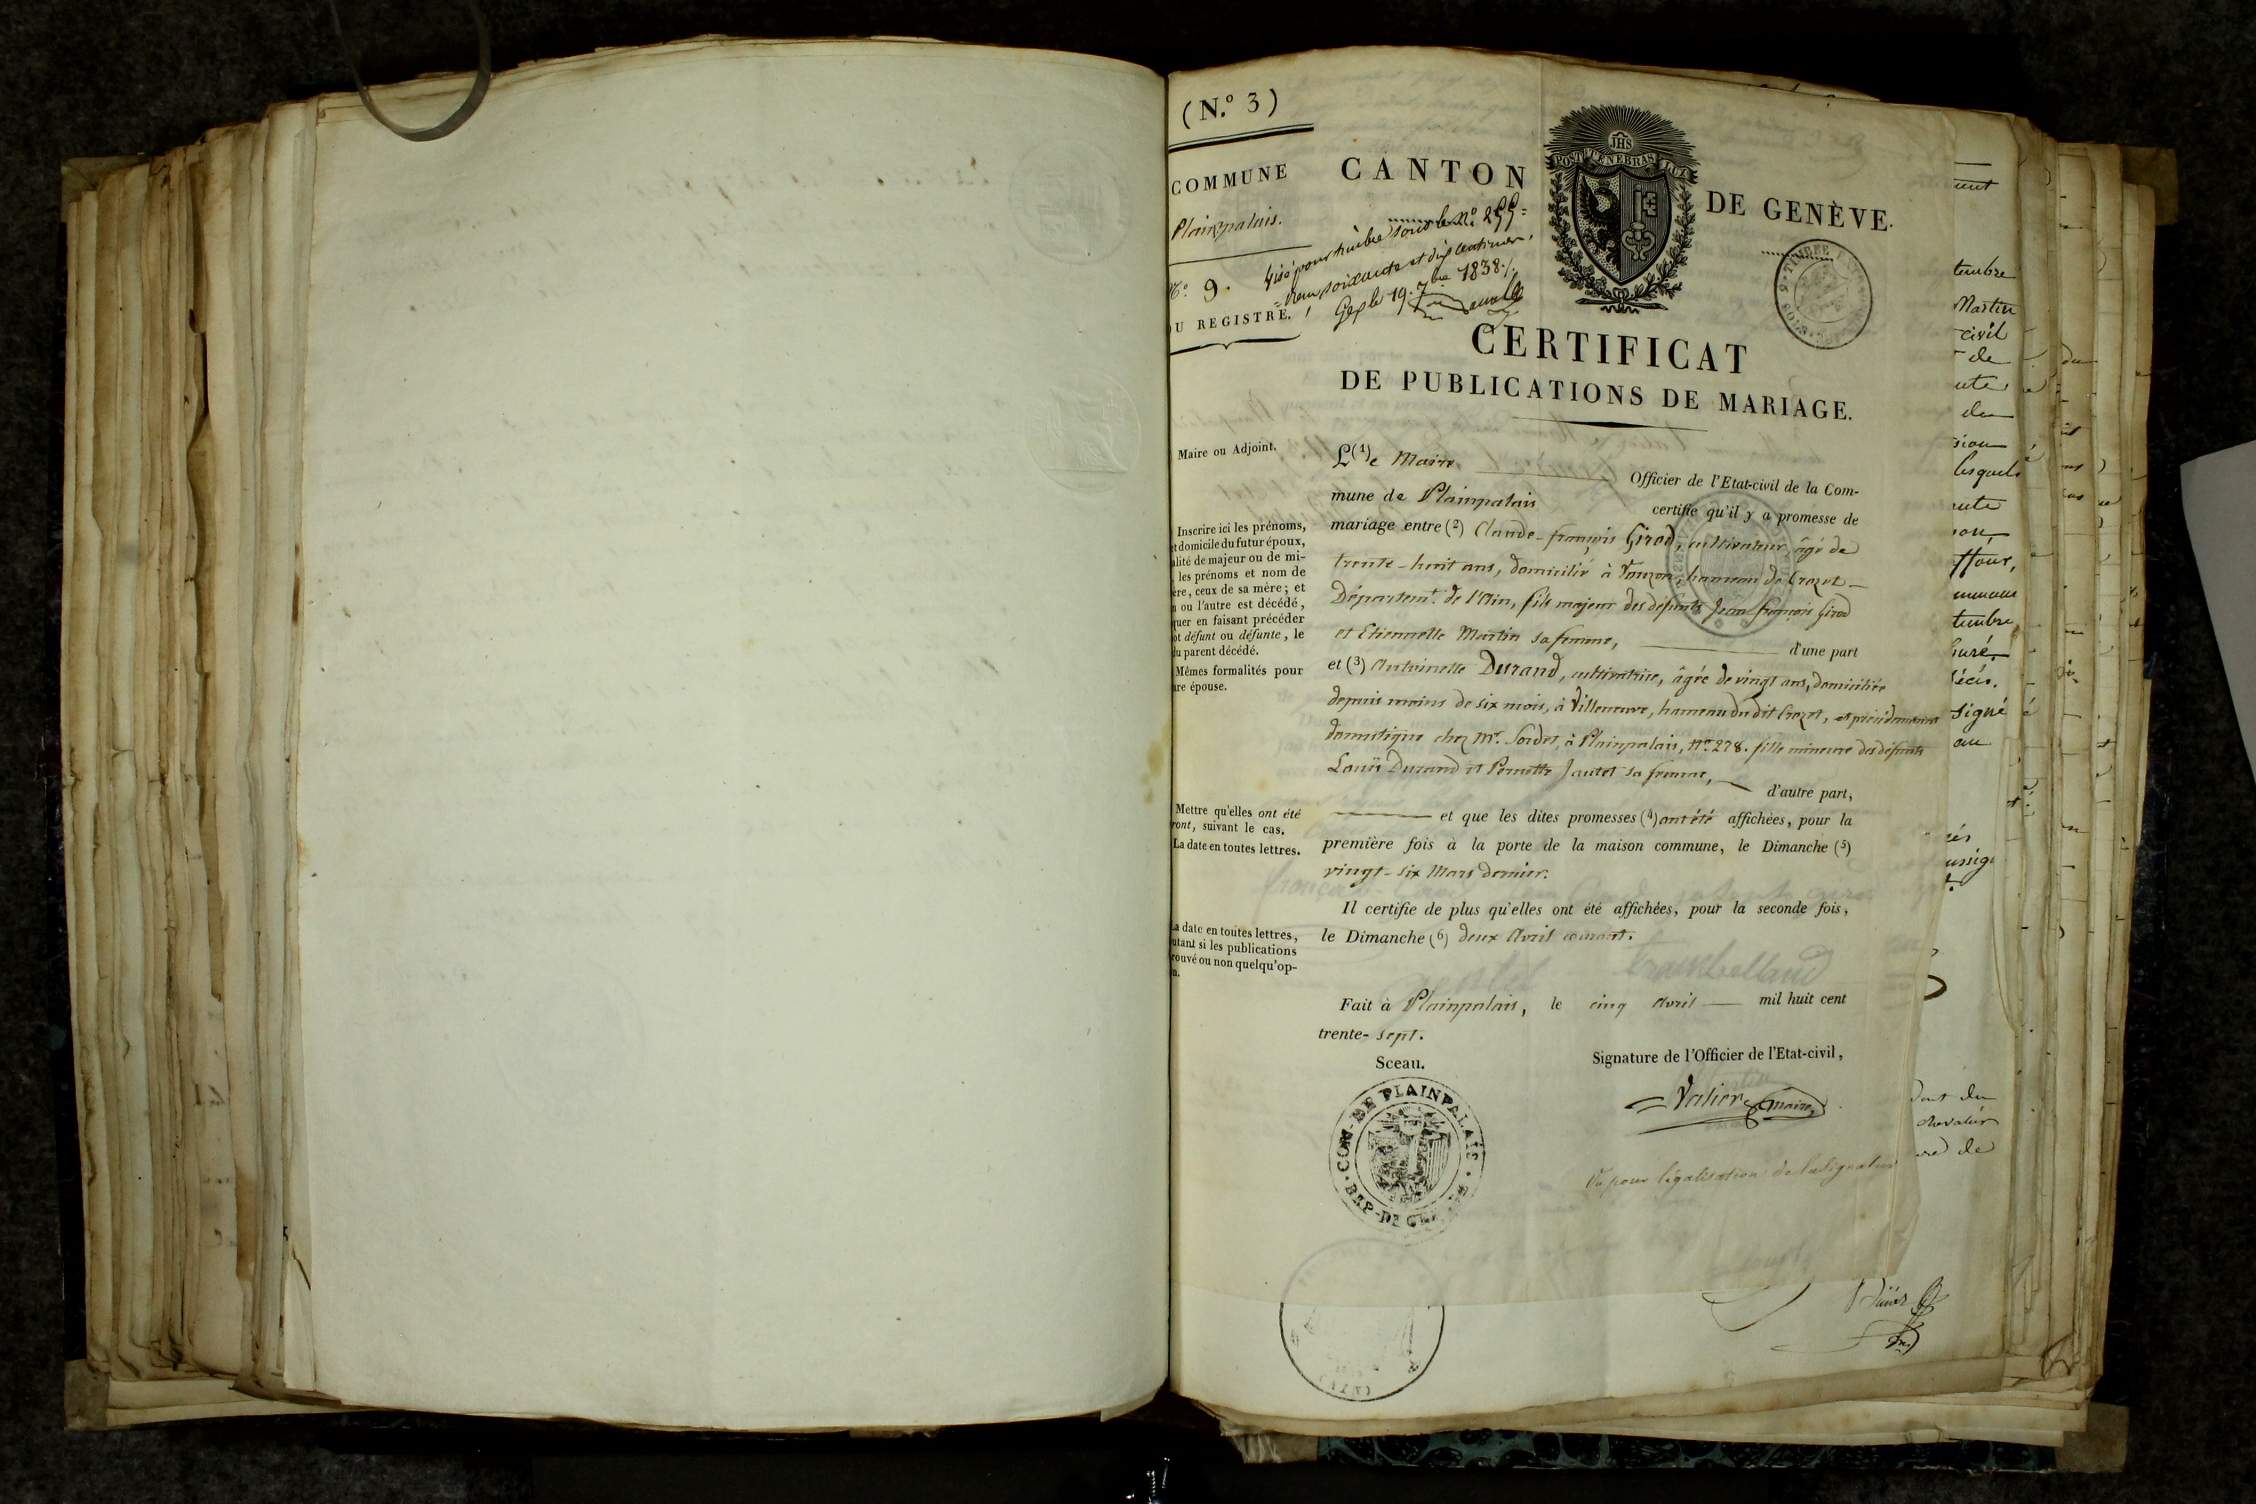 (N.º 3)
COMMUNE
Plainpalais.
Nº 9.
DU REGISTRE.
CANTON
DE GENÈVE.
JHS
POST TENEBRAS LUX
Visé pour timbre sous le Nº 255
soixante et dix centimes,
Gex le 19. 7bre 1838.
CERTIFICAT
DE PUBLICATIONS DE MARIAGE.
Maire ou Adjoint.
L(1)e Maire Officier de l'Etat-civil de la Com-
mune de Plainpalais certifie qu'il y a promesse de
mariage entre (2) Claude-françois Girod, cultivateur, âgé de
trente-huit ans, domicilié à Vouzon, hameau de Crozet
Départemt. de l'Ain, fils majeur des défunts Jean françois Girod
et Etiennette Martin sa femme, d'une part
et (3) Antoinette Durand, cultivatrice, âgée de vingt ans, domiciliée
depuis moins de six mois, à Villeneuve, hameau du dit Crozet, et précédemment
domestique chez Mr. Sordet, à Plainpalais, Nº 278. fille mineure des défunts
Louis Durand et Pernette Jautet sa femme, d'autre part,
et que les dites promesses (4) ont été affichées, pour la
première fois à la porte de la maison commune, le Dimanche (5)
vingt-six Mars dernier.
Il certifie de plus qu'elles ont été affichées, pour la seconde fois,
le Dimanche (6) deux Avril courant.
Fait à Plainpalais, le cinq Avril mil huit cent
trente-sept.
Sceau.
Signature de l'Officier de l'Etat-civil,
Maire
COM-NE PLAINPALAIS
Vu pour légalisation de la signature
Inscrire ici les prénoms,
et domicile du futur époux,
alité de majeur ou de mi-
les prénoms et nom de
ère, ceux de sa mère; et
ou l'autre est décédé,
quer en faisant précéder
ot défunt ou défunte, le
du parent décédé.
Mêmes formalités pour
ure épouse.
Mettre qu'elles ont été
ront, suivant le cas.
La date en toutes lettres.
La date en toutes lettres,
utant si les publications
rouvé ou non quelqu'op-
n.
tembre
Martin
civil
de
du
lesquels
tembre
signé
au
Dont du
ure de